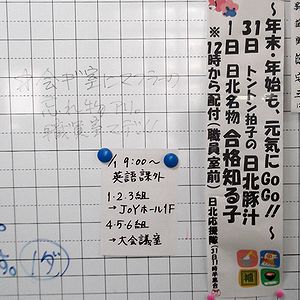 〜年末・年始も、元気にGoGo!!〜
31日 トントン拍子の日北豚汁
1日 日北名物 合格知る子
※12時から配付(職員室前)
日北応援隊
1/1 9:00〜
英語課外
1・2・3組
→JoYホール1F
4・5・6組
→大会議室
大会議室にマフラーの
忘れ物アリ